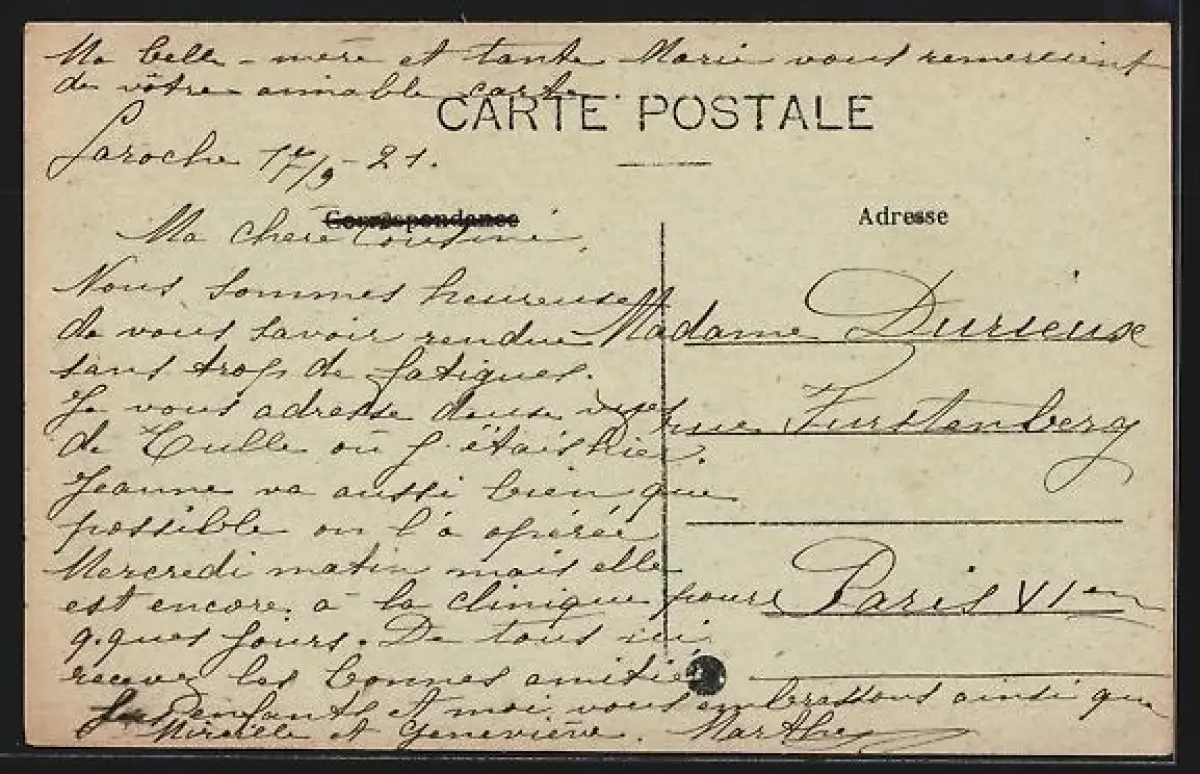 Ma belle-mère et tante Marie vous remercient
de vôtre aimable carte.
CARTE POSTALE
Laroche 17/9-21.
Correspondance
Adresse
Ma chère Cousine,
Nous sommes heureuses
de vous savoir rendue
sans trop de fatigues.
Je vous adresse deux vues
de Tulle où j'étais hier.
Jeanne va aussi bien que
possible on l'a opérée
Mercredi matin mais elle
est encore à la clinique pour
q.ques jours. De tous ici
recevez les bonnes amitiés
Les enfants et moi vous embrassons ainsi que
Mireille et Geneviève. Marthe
Madame Durieux
rue Furstenberg
Paris VI en